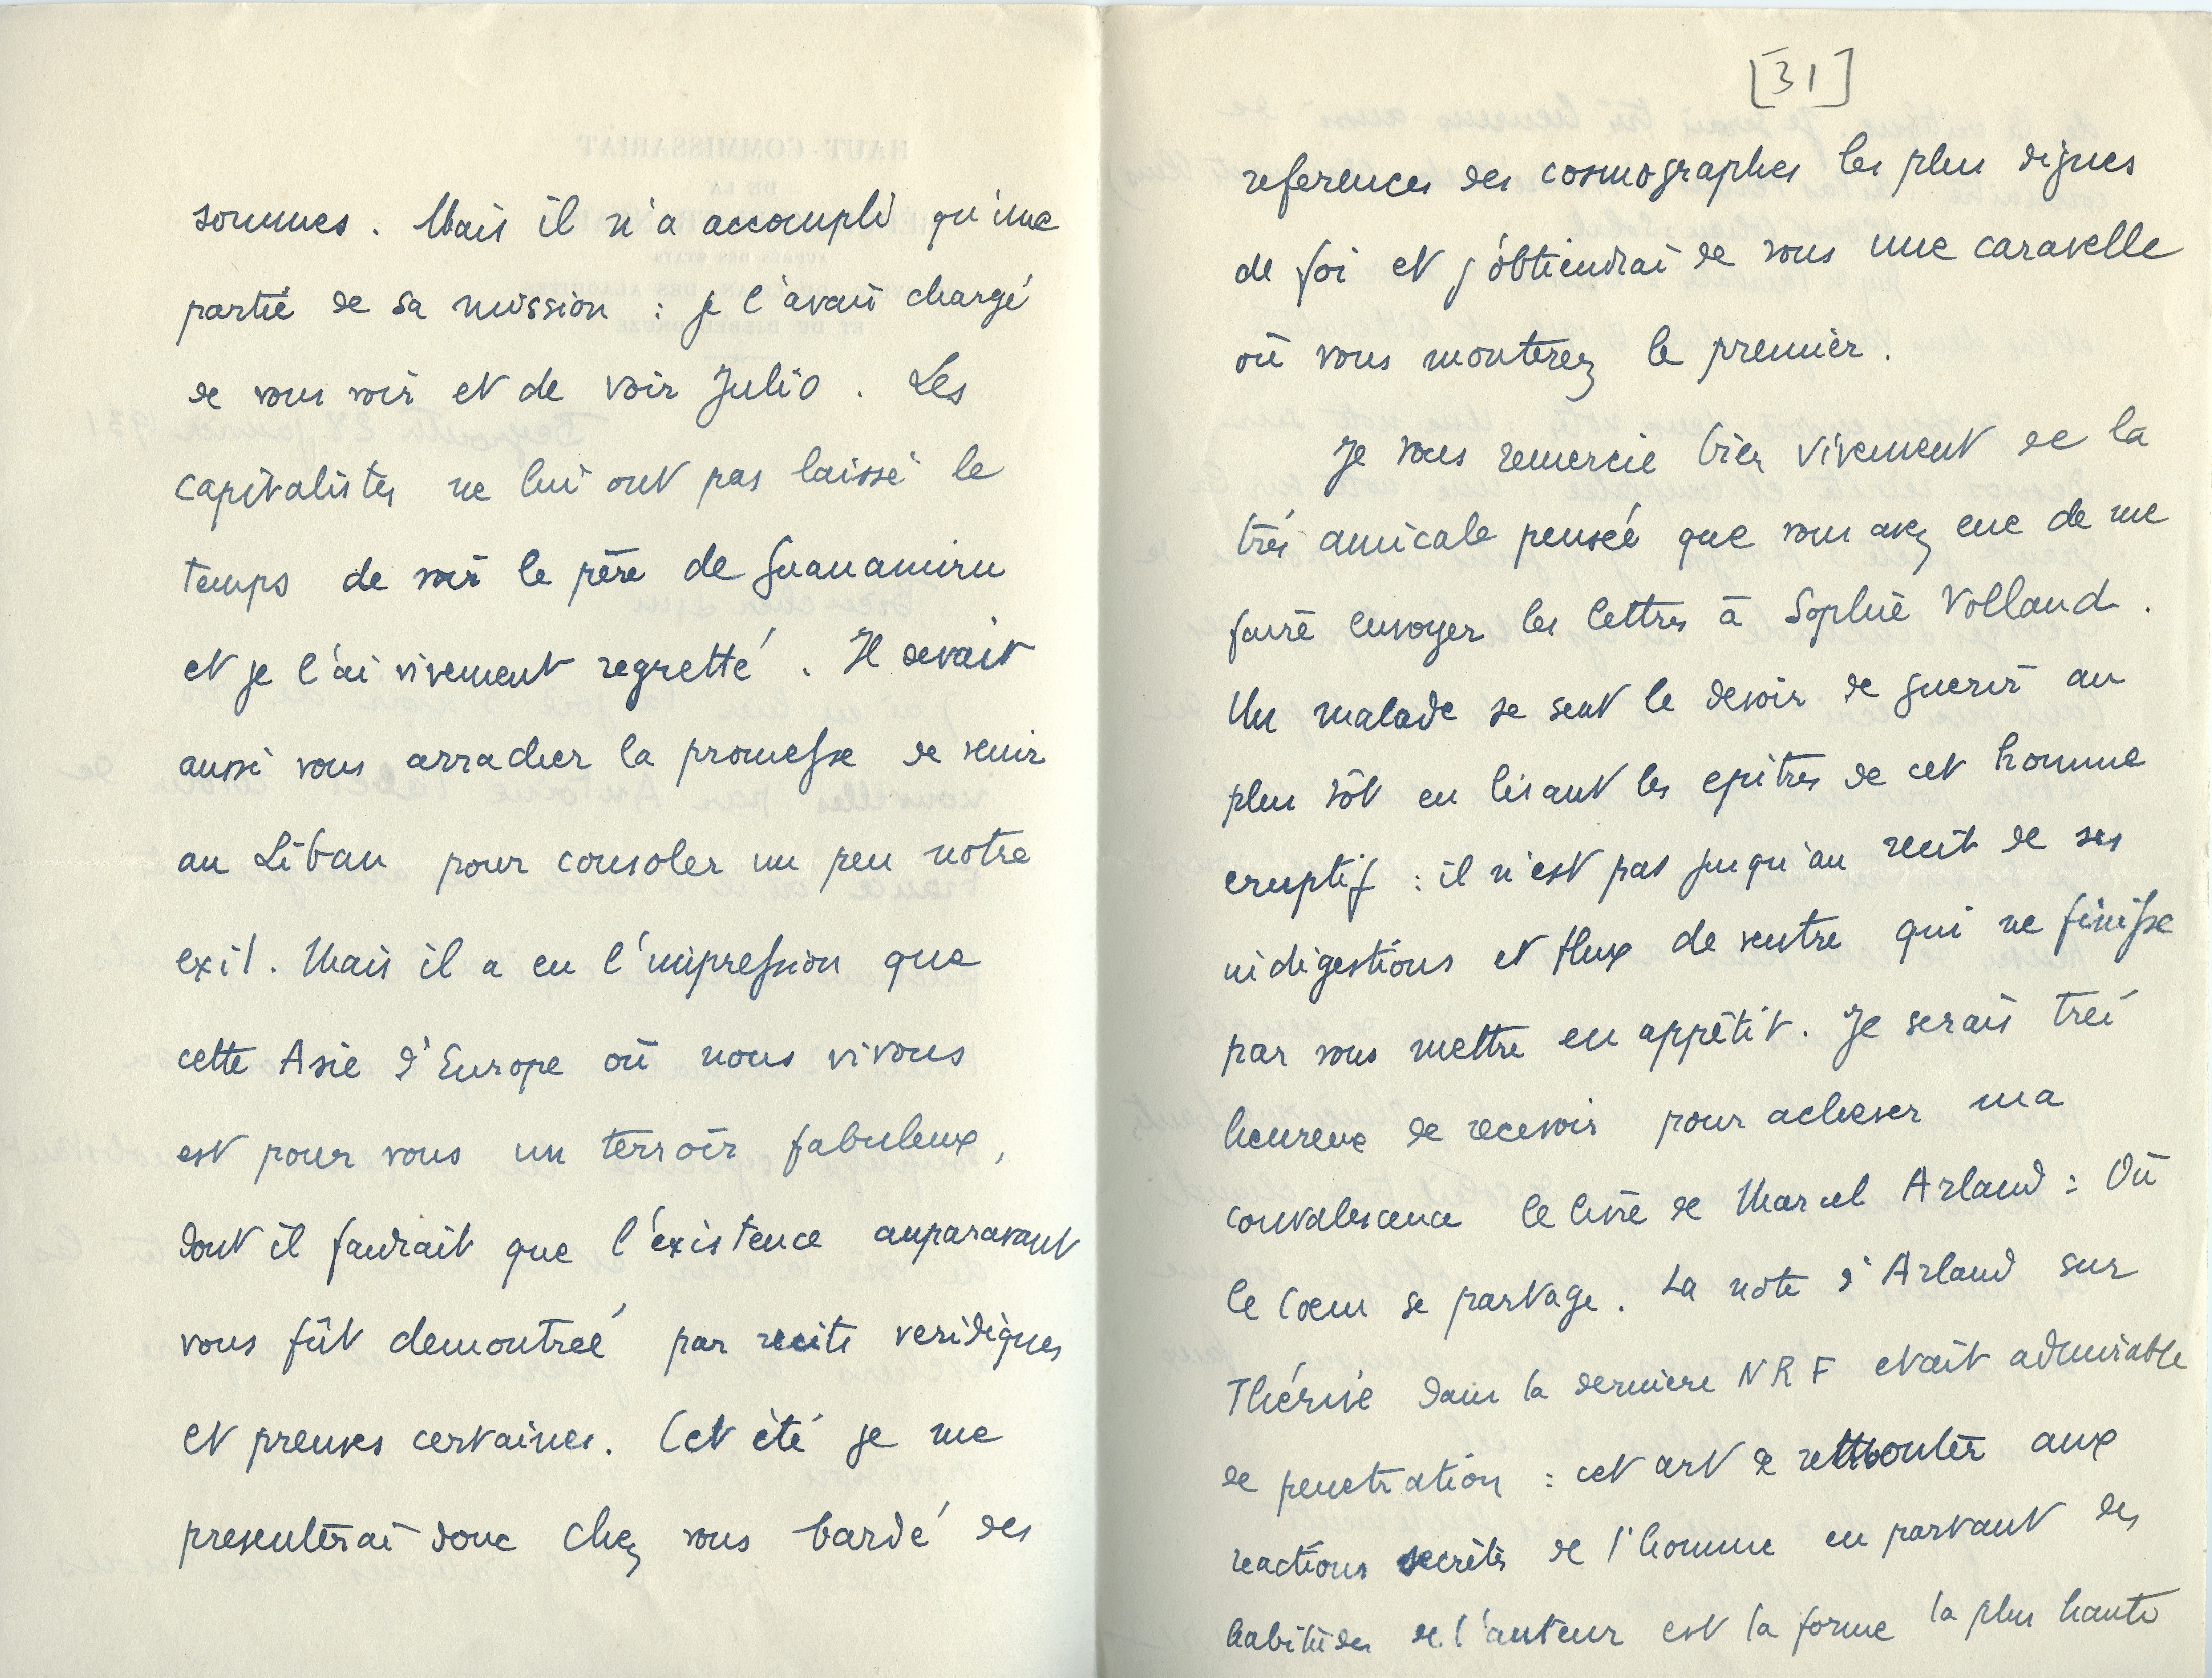 sommes. Mais il n'a accompli qu'une
partie de sa mission : je l'avais chargé
de vous voir et de voir Julio. Les
capitalistes ne lui ont pas laissé le
temps de voir le père de Guanamiru
et je l'ai vivement regretté. Il devait
aussi vous arracher la promesse de venir
au Liban pour consoler un peu notre
exil. Mais il a eu l'impression que
cette Asie d'Europe où nous vivons
est pour vous un terroir fabuleux,
dont il faudrait que l'existence auparavant
vous fût demontreé par recits veridiques
et preuves certaines. Cet été je me
presenterai donc chez vous bardé des
[31]
references des cosmographes les plus dignes
de foi et j'obtiendrai de vous une caravelle
où vous monterez le premier.
Je vous remercie bien vivement de la
très amicale pensée que vous avez eue de me
faire envoyer les lettres à Sophie Volland.
Un malade se sent le devoir de guerir au
plus tôt en lisant les epitres de cet homme
eruptif : il n'est pas jusqu'au recit de ses
indigestions et flux de ventre qui ne finisse
par vous mettre en appétit. Je serais très
heureux de recevoir pour achever ma
convalescence le livre de Marcel Arland : Où
le Coeur se partage. La note d'Arland sur
Thérive dans la derniere NRF etait admirable
de penetration : cet art de remonter aux
reactions secrètes de l'homme en partant des
habitudes de l'auteur est la forme la plus haute
HAUT-COMMISSARIAT
DE LA
AUPRÈS DES ETATS
ET DU DJEBEL DRUZE
Beyrouth 28 janvier 1931